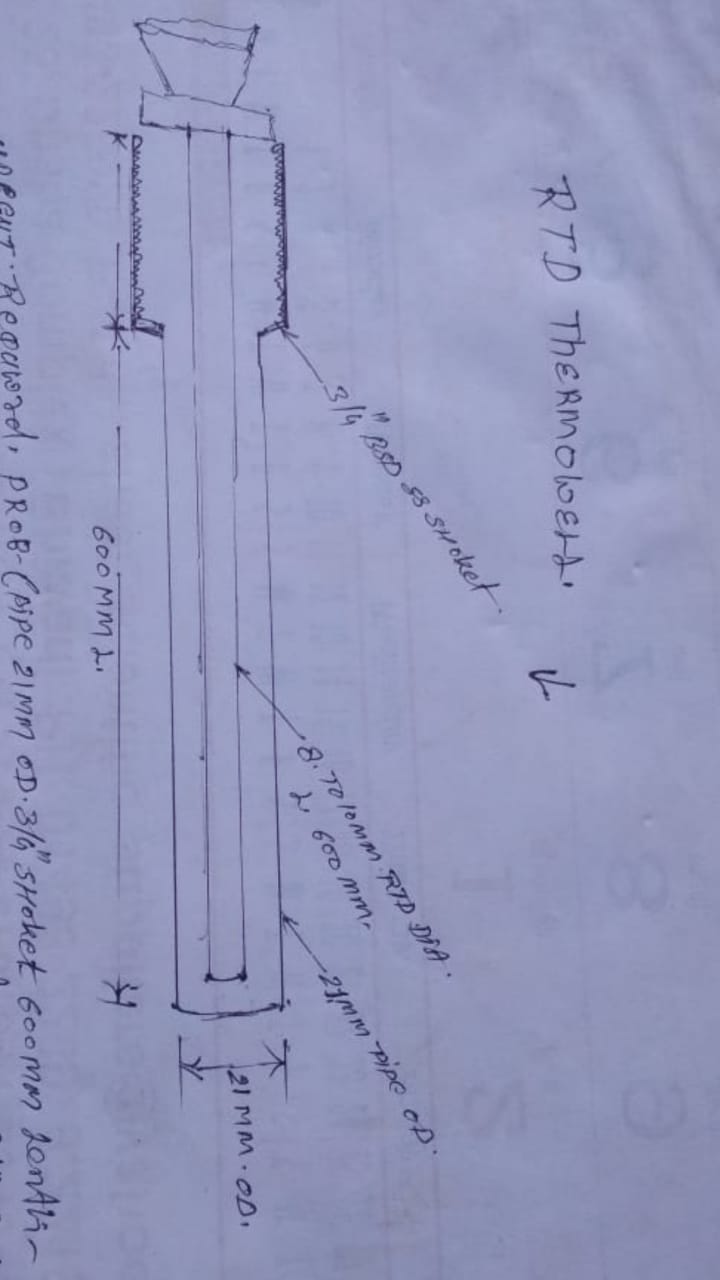 RTD THERMOWELL.
3/4" BSP SS SHOKET.
8. TO 10MM RTD DIA.
L 600 MM.
21MM PIPE OD.
21 MM. OD.
600 MM L.
URGENT. REQUIRED, PROB-(PIPE 21MM OD. 3/4" SHOKET 600MM LENGTH-